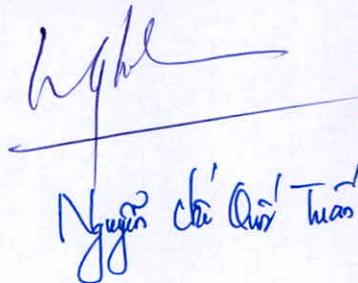 Nguyễn Chí Quốc Tuấn